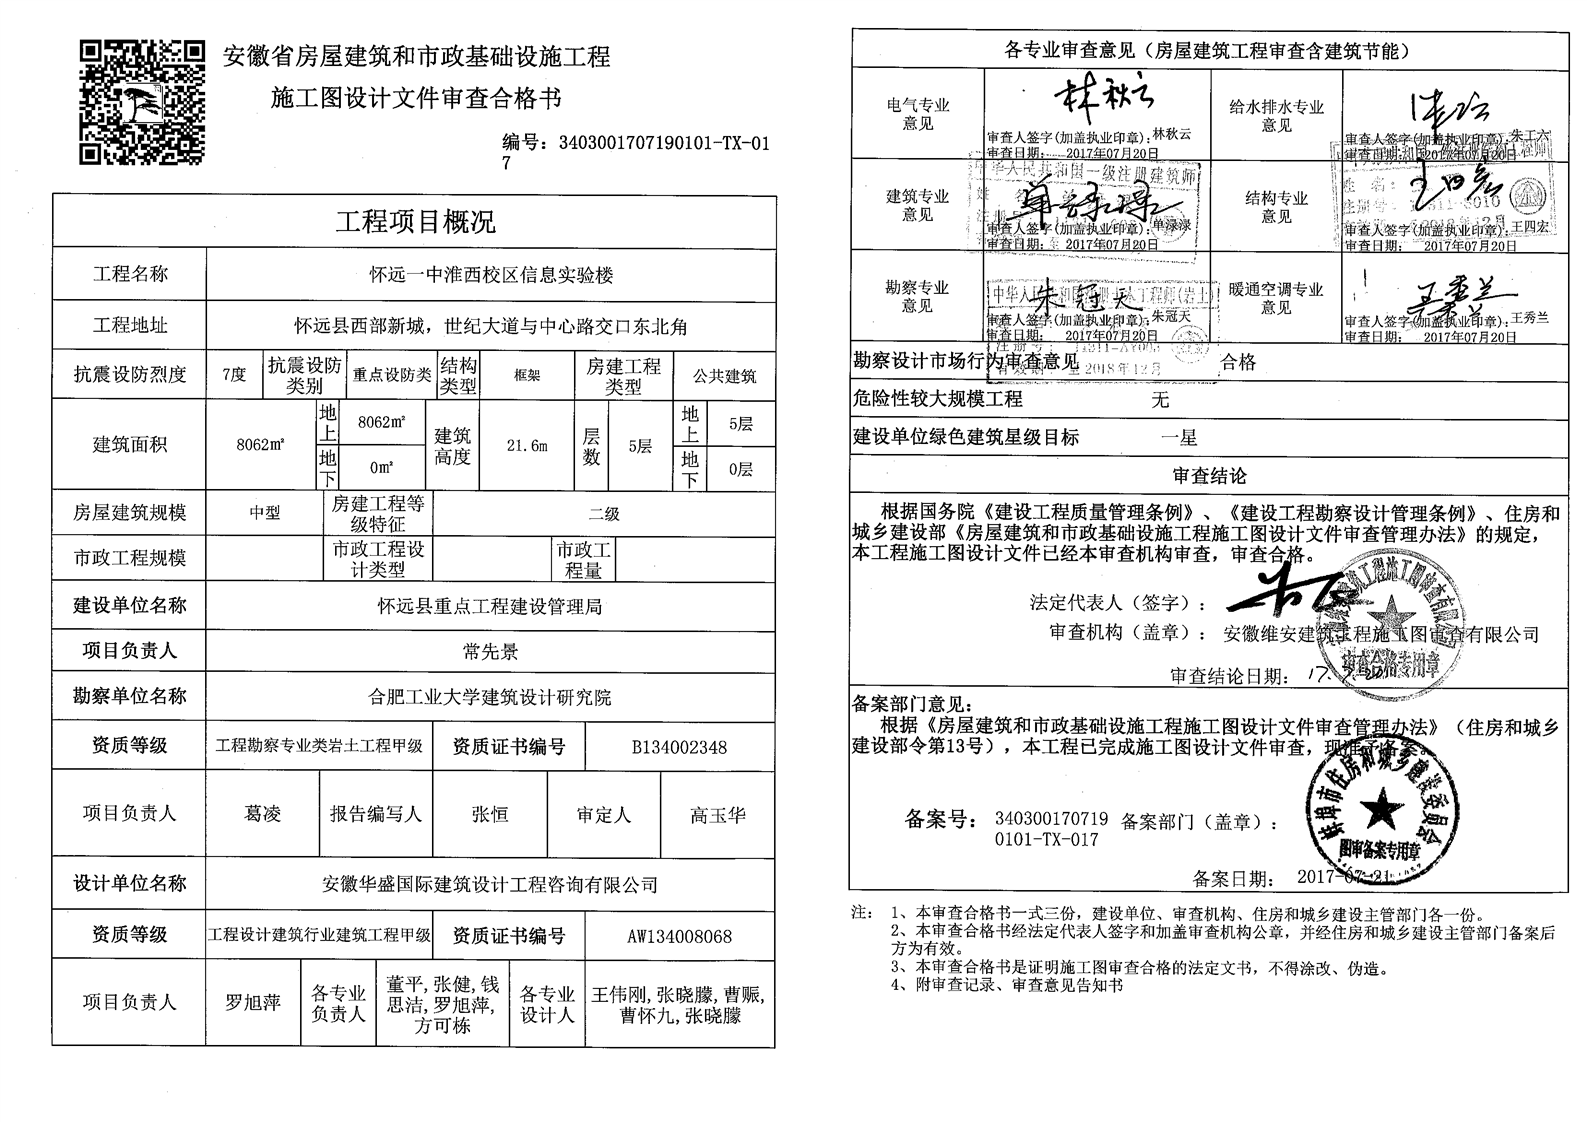 安徽省房屋建筑和市政基础设施工程
施工图设计文件审查合格书
编号：3403001707190101-TX-01
7
工程项目概况
工程名称 怀远一中淮西校区信息实验楼
工程地址 怀远县西部新城，世纪大道与中心路交口东北角
抗震设防烈度 7度 抗震设防类别 重点设防类 结构类型 框架 房建工程类型 公共建筑
建筑面积 8062㎡ 地上 8062㎡ 地下 0㎡ 建筑高度 21.6m 层数 5层 地上 5层 地下 0层
房屋建筑规模 中型 房建工程等级特征 二级
市政工程规模 市政工程设计类型 市政工程量
建设单位名称 怀远县重点工程建设管理局
项目负责人 常先景
勘察单位名称 合肥工业大学建筑设计研究院
资质等级 工程勘察专业类岩土工程甲级 资质证书编号 B134002348
项目负责人 葛凌 报告编写人 张恒 审定人 高玉华
设计单位名称 安徽华盛国际建筑设计工程咨询有限公司
资质等级 工程设计建筑行业建筑工程甲级 资质证书编号 AW134008068
项目负责人 罗旭萍 各专业负责人 董平,张健,钱思洁,罗旭萍,方可栋 各专业设计人 王伟刚,张晓朦,曹赈,曹怀九,张晓朦
各专业审查意见（房屋建筑工程审查含建筑节能）
电气专业意见 林秋云 审查人签字(加盖执业印章)：林秋云
审查日期： 2017年07月20日
给水排水专业意见 审查人签字(加盖执业印章)：朱工六
审查日期： 2017年07月20日
建筑专业意见 审查人签字(加盖执业印章)：单渌渌
审查日期： 2017年07月20日
中华人民共和国一级注册建筑师
结构专业意见 王四宏 审查人签字(加盖执业印章)：王四宏
审查日期： 2017年07月20日
勘察专业意见 朱冠天 审查人签字(加盖执业印章)：朱冠天
审查日期： 2017年07月20日
暖通空调专业意见 王秀兰 审查人签字(加盖执业印章)：王秀兰
审查日期： 2017年07月20日
至2018年12月
勘察设计市场行为审查意见 合格
危险性较大规模工程 无
建设单位绿色建筑星级目标 一星
审查结论
根据国务院《建设工程质量管理条例》、《建设工程勘察设计管理条例》、住房和
城乡建设部《房屋建筑和市政基础设施工程施工图设计文件审查管理办法》的规定，
本工程施工图设计文件已经本审查机构审查，审查合格。
法定代表人（签字）：
审查机构（盖章）： 安徽维安建筑工程施工图审查有限公司
审查合格专用章
审查结论日期： 17.7.20
备案部门意见：
根据《房屋建筑和市政基础设施工程施工图设计文件审查管理办法》（住房和城乡
建设部令第13号），本工程已完成施工图设计文件审查，现准予备案。
蚌埠市住房和城乡建设委员会
图审备案专用章
备案号： 340300170719 备案部门（盖章）：
0101-TX-017
备案日期： 2017-07-21
注： 1、本审查合格书一式三份，建设单位、审查机构、住房和城乡建设主管部门各一份。
2、本审查合格书经法定代表人签字和加盖审查机构公章，并经住房和城乡建设主管部门备案后
方为有效。
3、本审查合格书是证明施工图审查合格的法定文书，不得涂改、伪造。
4、附审查记录、审查意见告知书